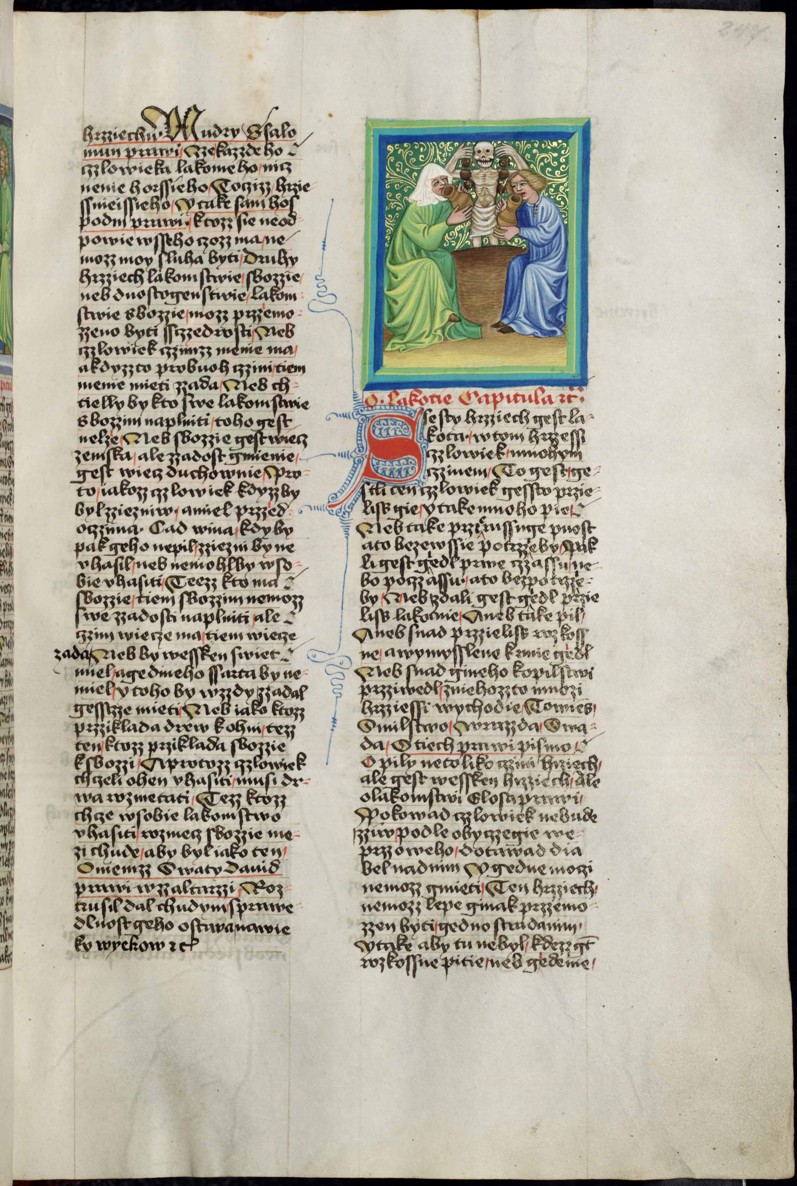 247
hrziechu. Mudry Ssalo
mun prawi, Nzekazdeho
czlowieka lakomeho, nicz
nenie horssieho
ssnieissieho, y take sam hos
podin prawi, ktozz sie neod
powie wsseho czozz ma, ne
mozz moy sluha byti, Druhy
hrziech lakomstwie, sbozzie,
neb duostogenstwie, lakom
stwie sbozzie, mozz przemo
zzeno byti sstzedrosti, Neb
czlowiek czzimzz menie ma,
a kdyzzto pro buoh czzini, tiem
menie mieti zzada, Neb ch
tielby by kto swe lakomstwie
sbozzim naplniti, toho gest
nelze, Neb sbozzie gest wiecz
zemska, ale zzadost gmienie,
gest wiecz duchownie, Pro
to, iakozz czlowiek kdyzz by
byl zziezniw, a miel przzed
oczzima, kdy by
pak geho nepil, zziezni by ne
vhasil, neb nemohl by w so
bie vhasiti, Teezz kto ma
sbozzie, tiem sbozzim nemozz
swe zzadosti naplniti, ale
czzim wiecze ma, tiem wiecze
zada, Neb by wessken swiet
miel, a gedineho ssarta by ne
miel, y toho by wzzdy zzadal
gesstze mieti, Neb iako ktozz
przziklada drew k ohni, tezz
ten, ktozz przziklada sbozzie
k sbozzi, A protozz czlowiek
chczeli ohen vhasiti, musi dr
wa rozmetati, Tezz ktozz
chcze w sobie lakomstwo
vhasiti, rozmecz sbozzie me
zi chude, aby byl iako ten,
O niemzz Swaty Dawid
prawi w zzaltarzzi, Roz
trusil dal chudym, sprawe
dlnost geho ostawa na wie
ky wyekow etc
O lakotie Capitula etc
Sesty hrziech gest la
kota, w tom hrzessi
czlowiek, mnohym
czzinem, To gest, ge
stli ten czlowiek gessto przie
liss gie, y take mnoho pie,
Neb take przierussuge puost
a to bezewssie potrzeby, Pak
li gest gedl prwe czzassu, ne
bo po czzassu, a to bez potrze
by, Neb zdali gest gedl przie
liss lakotnie, Aneb take pil,
Aneb snad przieliss rozkoss
ne, a wymysslene krmie gedl
Neb snad gineho k opilstwi
przziwedl, z niehozzto mnozi
hrziessi wychodie, To wiess,
Smilstwo, Wrazzda, Swa
da, O tiech prawi pismo,
Opily netoliko czzini hrziech,
ale gest wessken hrziech, Ale
o lakomstwi Glosa prawi,
Pokowad czlowiek nebude
zziw podle obyczzegie we
przoweho, dotawad dia
bel nad nim y gedne mozi
nemozz gmieti, Ten hrziech,
nemozz lepe ginak przzemo
zzen byti, gedno stradanim,
y take aby tu nebyl, kdezz gt
rozkossne pitie, neb gedenie,